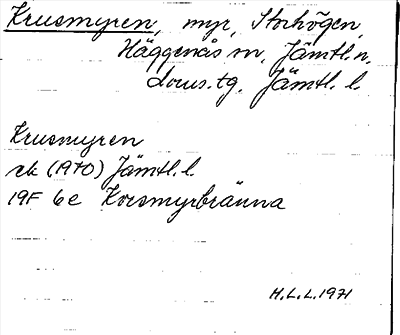 Krusmyren, myr, Storhögen,
Häggenås sn, Jämtl.n.
doms.tg. Jämtl. l.
Krusmyren
ek (1970) Jämtl. l.
19F 6e Korsmyrbränna
H.L.L. 1971